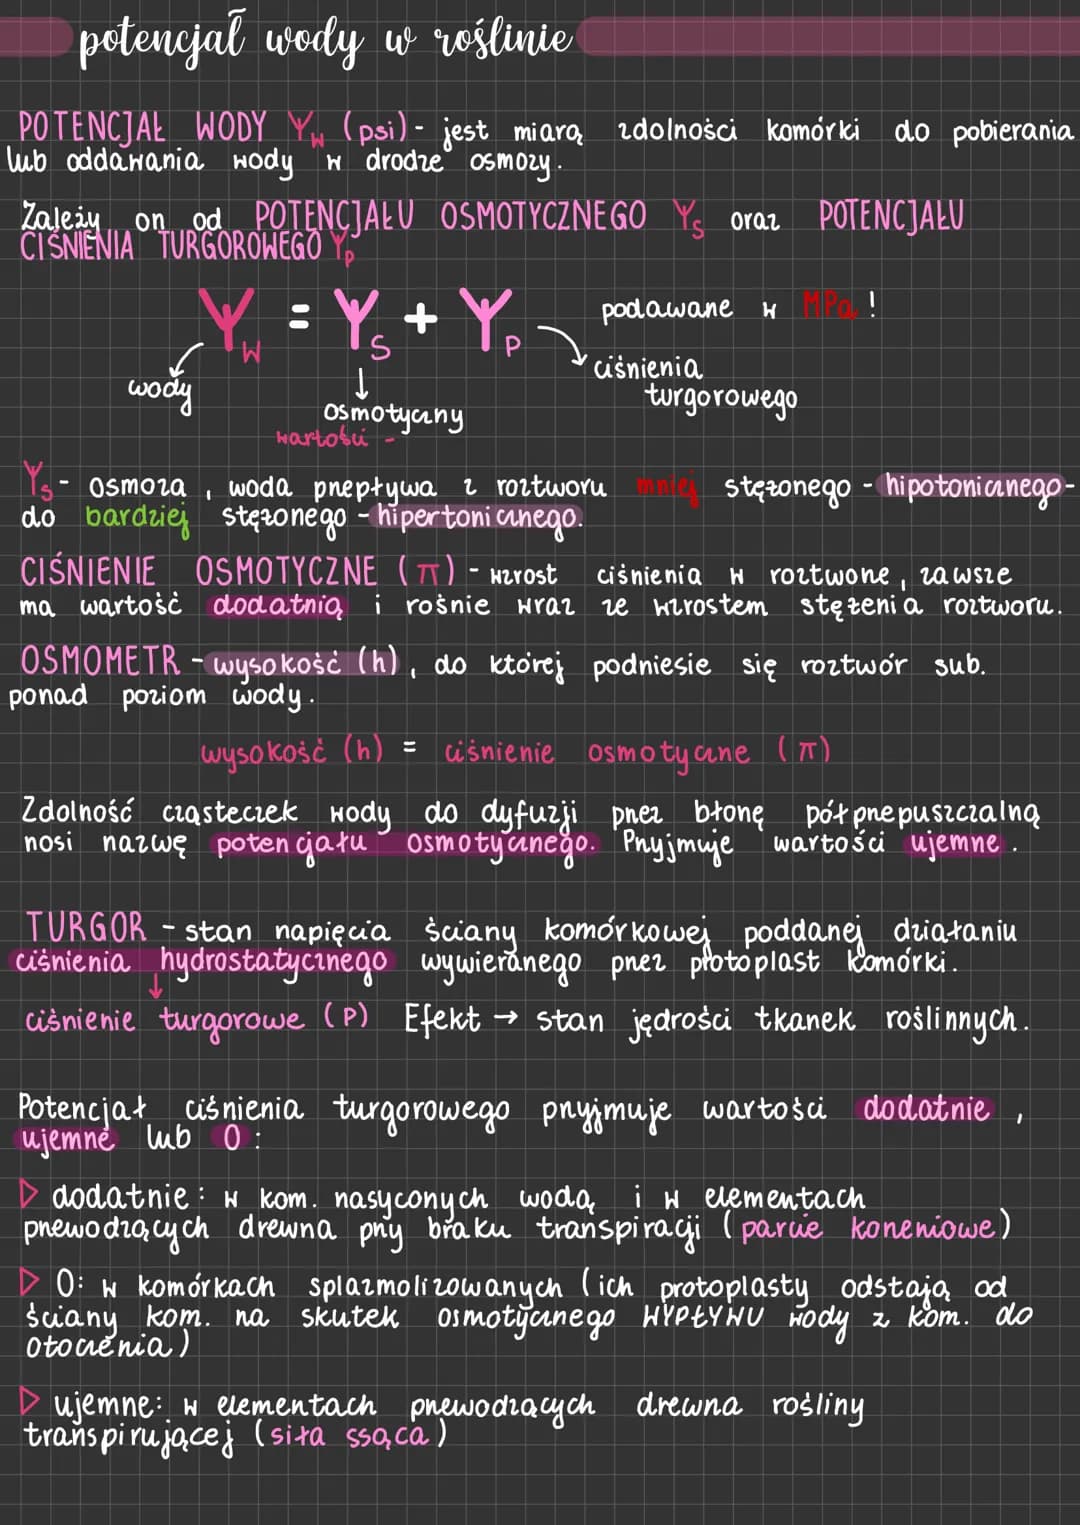 potencjał wody w roślinie
POTENCJAŁ WODY Ψw (psi) - jest miarą zdolności komórki do pobierania
lub oddawania wody w drodze osmozy.
Zależy on od POTENCJAŁU OSMOTYCZNEGO Ψs oraz POTENCJAŁU
CIŚNIENIA TURGOROWEGO Ψp
Ψw = Ψs + Ψp
podawane w MPa !
wody
osmotyczny
wartości -
ciśnienia
turgorowego
Ψs - osmoza , woda przepływa z roztworu mniej stężonego - hipotonicznego -
do bardziej stężonego - hipertonicznego.
CIŚNIENIE OSMOTYCZNE (π) - wzrost ciśnienia w roztworze , zawsze
ma wartość dodatnią i rośnie wraz ze wzrostem stężenia roztworu.
OSMOMETR - wysokość (h) , do której podniesie się roztwór sub.
ponad poziom wody.
wysokość (h) = ciśnienie osmotyczne (π)
Zdolność cząsteczek wody do dyfuzji przez błonę półprzepuszczalną
nosi nazwę potencjału osmotycznego. Przyjmuje wartości ujemne .
TURGOR - stan napięcia ściany komórkowej poddanej działaniu
ciśnienia hydrostatycznego wywieranego przez protoplast komórki.
↓
ciśnienie turgorowe (P) Efekt → stan jędrości tkanek roślinnych.
Potencjał ciśnienia turgorowego przyjmuje wartości dodatnie ,
ujemne lub 0 :
▷ dodatnie : w kom. nasyconych wodą i w elementach
przewodzących drewna przy braku transpiracji (parcie korzeniowe)
▷ 0: w komórkach splazmolizowanych (ich protoplasty odstają od
ściany kom. na skutek osmotycznego WYPŁYWU wody z kom. do
otoczenia)
▷ ujemne: w elementach przewodzących drewna rośliny
transpirującej (siła ssąca)